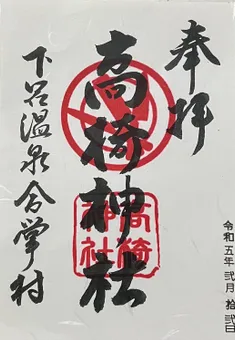 奉拝
高椅神社
高椅
神社
下呂温泉合掌村
令和五年 弐月 拾弐日